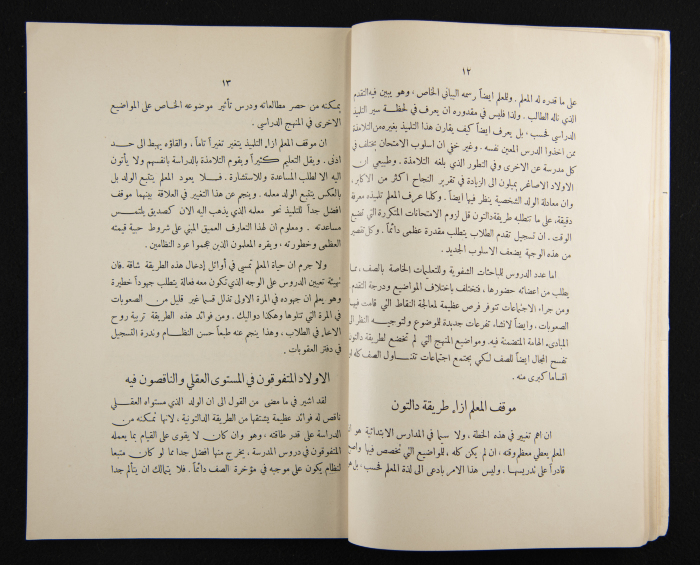 ١٢
على ما قدره له المعلم . وللمعلم ايضاً رسمه البياني الخاص ، وهو يبين فيه التقدم
الذي ناله الطالب . ولذا فليس في مقدوره ان يعرف في لحظة سير التلميذ
الدراسي فحسب ، بل يعرف ايضاً كيف يقارن هذا التلميذ بغيره من التلامذة
ممن اخذوا الدرس المعين نفسه . وغير خفي ان اسلوب الامتحان يختلف في
كل مدرسة عن الاخرى وفي التطور الذي بلغه التلامذة . وطبيعي ان
الاولاد الاصاغر يميلون الى الزيادة في تقرير النجاح اكثر من الاكابر ،
وان معادلة الولد الشخصية ينظر فيها ايضاً . وكلما عرف المعلم تلميذه معرفة
دقيقة، على ما تتطلبه طريقة دالتون قل لزوم الامتحانات المتكررة التي تضيع
الوقت . ان تسجيل تقدم الطلاب يتطلب مقدرة عظمى دائماً . وكل تقصير
من هذه الوجهة يضعف الاسلوب الجديد .
اما عدد الدروس للمباحثات الشفوية والتعليمات الخاصة بالصف ،
يطلب من اعضائه حضورها ، فتختلف باختلاف المواضيع ودرجة التقدم
ومن جراء الاجتماعات تتوفر فرص عظيمة لمعالجة النقاط التي قامت فيها
الصعوبات ، وايضاً لانشاء تفرعات جديدة للموضوع ولتوجيه النظر الى
المبادىء الهامة المتضمنة فيه . ومواضيع المنهج التي لم تخضع لطريقة دالتون
تفسح المجال ايضاً للصف لكي يجتمع اجتماعات تتناول الصف كله او
اقساما كبرى منه .
موقف المعلم ازاء طريقة دالتون
ان اهم تغيير في هذه الخطة ، ولا سيما في المدارس الابتدائية هو ان
المعلم يعطي معظم وقته ، ان لم يكن كله ، للمواضيع التي تخصص فيها واصبح
قادراً على تدريسها . وليس هذا الامر بادعى الى لذة المعلم فحسب ، بل
١٣
يمكنه من حصر مطالعاته ودرس تأثير موضوعه الخاص على المواضيع
الاخرى في المنهج الدراسي .
ان موقف المعلم ازاء التلميذ يتغير تغيراً تاماً ، والقاؤه يهبط الى حد
ادنى . ويقل التعليم كثيراً ويقوم التلامذة بالدراسة بانفسهم ولا يأتون
اليه الا لطلب المساعدة وللاستشارة . فلا يعود المعلم يتتبع الولد بل
بالعكس يتتبع الولد معلمه . وينجم عن هذا التغيير في العلاقة بينهما موقف
افضل جداً للتلميذ نحو معلمه الذي يذهب اليه الان كصديق يلتمس
مساعدته . ومعلوم ان لهذا التعارف العميق المبني على شروط حبية قيمته
العظمى وخطورته ، ويقره المعلمون الذين عجموا عود النظامين .
ولا جرم ان حياة المعلم تمسي في أوائل إدخال هذه الطريقة شاقة . فان
تهيئة تعيين الدروس على الوجه الذي تكون معه فعالة يتطلب جهوداً خطيرة
وهو يعلم ان جهوده في المرة الاولى تذلل قسما غير قليل من الصعوبات
في المرة التي تتلوها وهكذا دواليك . ومن فوائد هذه الطريقة تربية روح
الاخاء في الطلاب ، وهذا ينجم عنه طبعاً حسن النظام وندرة التسجيل
في دفتر العقوبات .
الاولاد المتفوقون في المستوى العقلي والناقصون فيه
لقد اشير في ما مضى من القول الى ان الولد الذي مستواه العقلي
ناقص له فوائد عظيمة يشتقها من الطريقة الدالتونية ، لانها تمكنه من
الدراسة على قدر طاقته ، وهو وان كان لا يقوى على القيام بما يعمله
المتفوقون في دروس المدرسة ، يخرج منها افضل جدا مما لو كان متبعا
لنظام يكون على موجبه في مؤخرة الصف دائماً . فلا يتمالك ان يتألم جدا